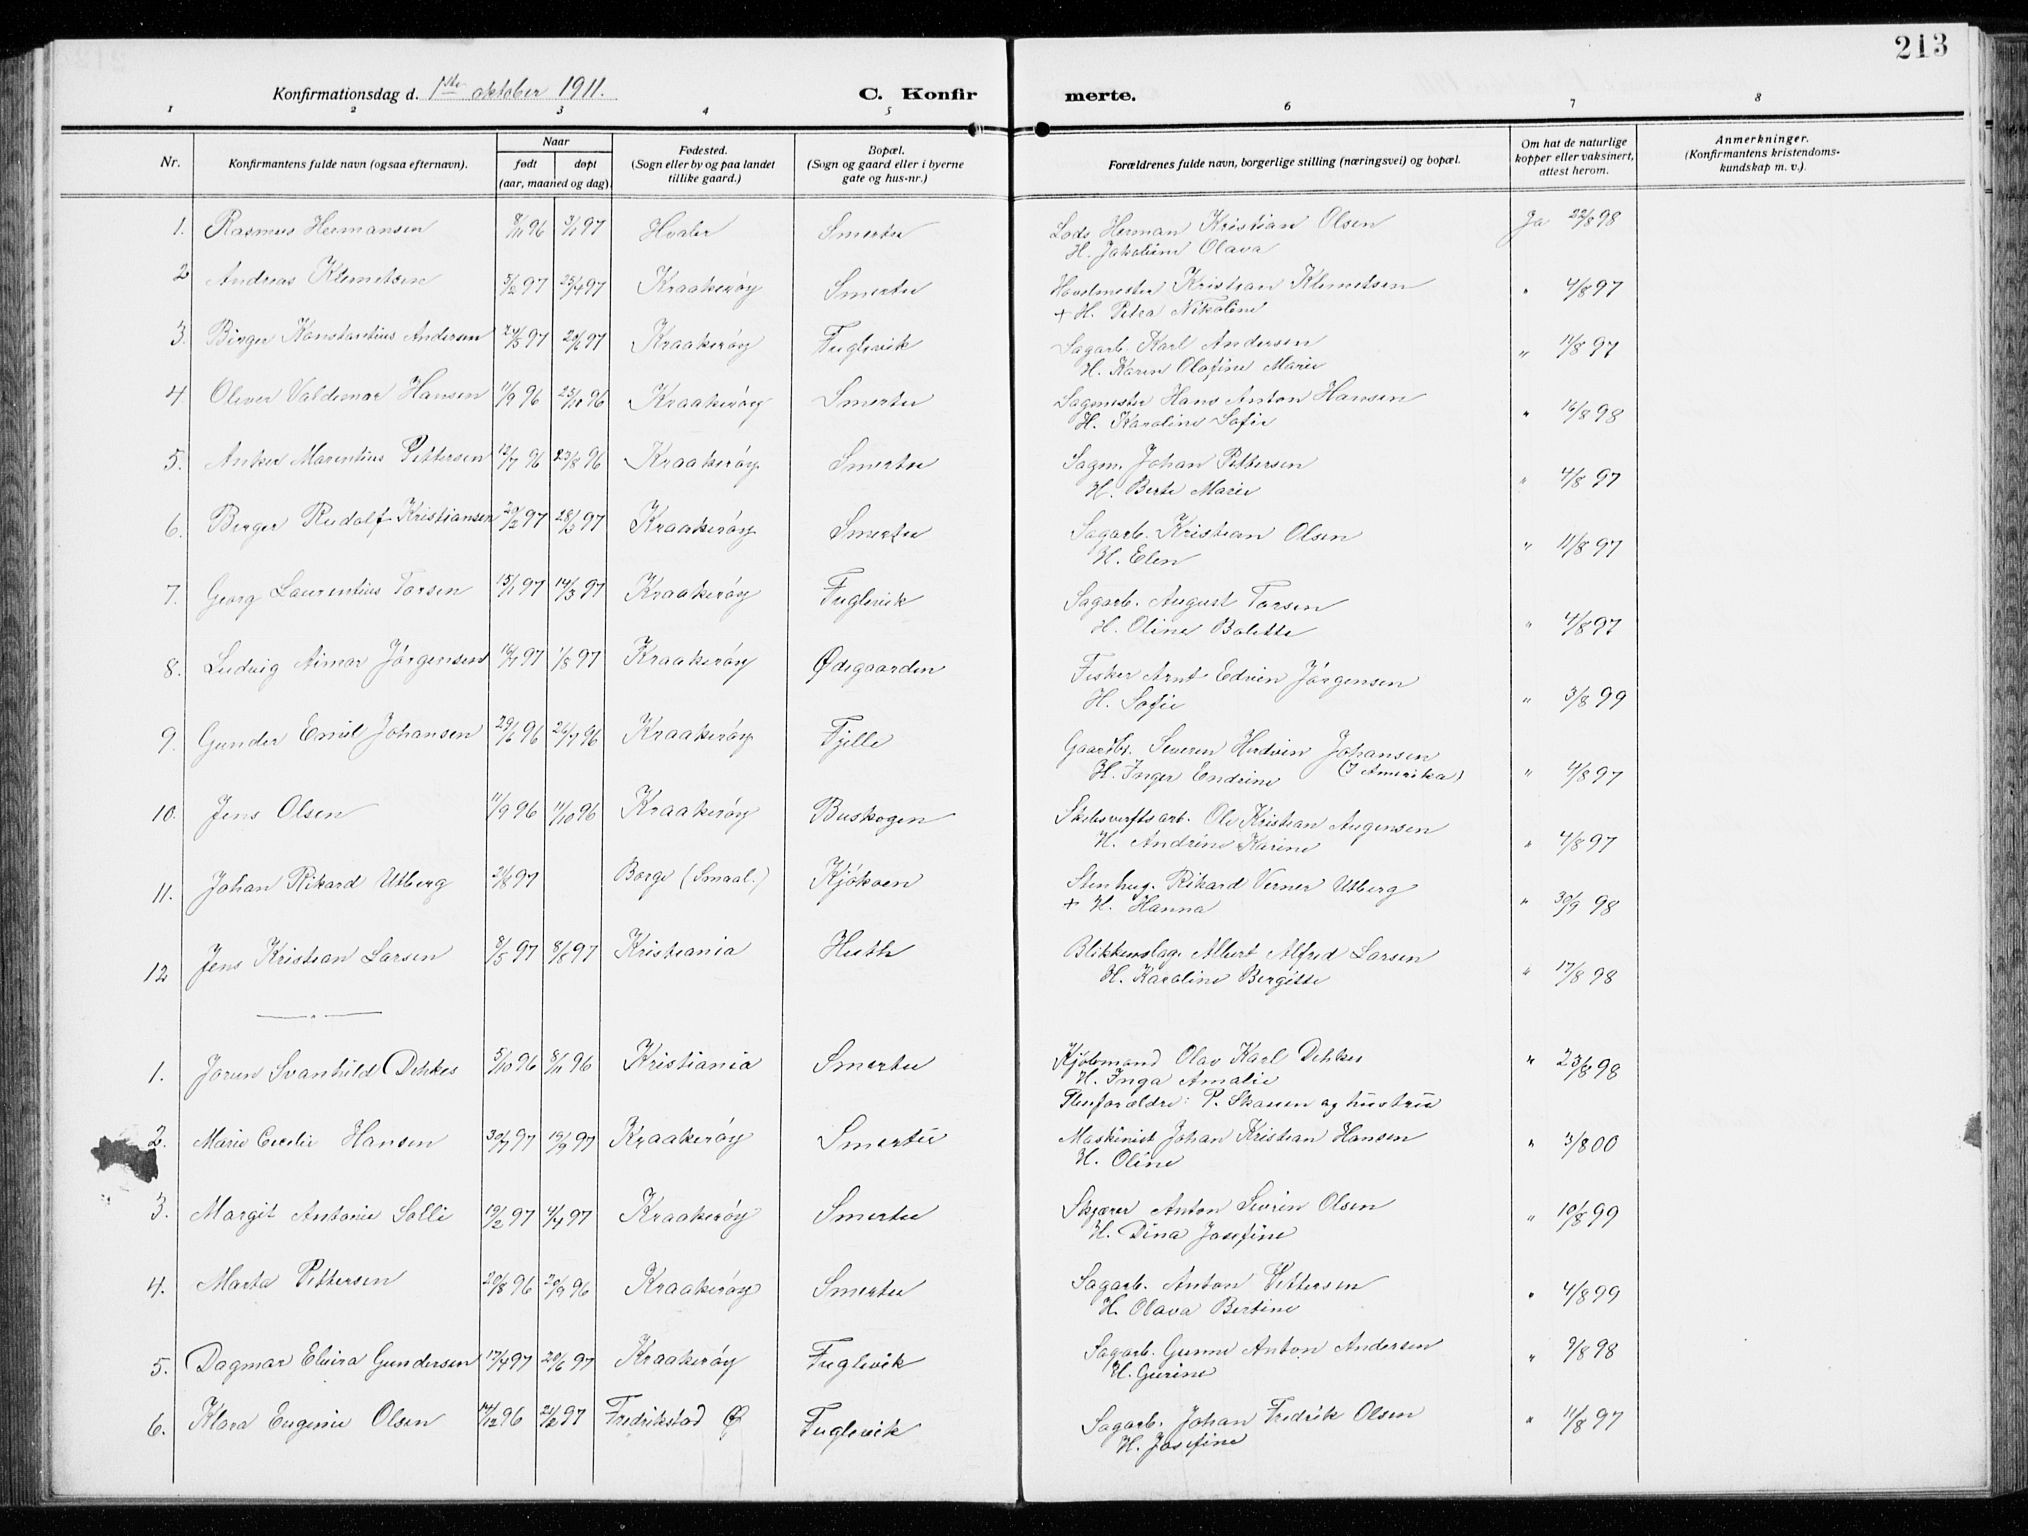 213
Konfirmationsdag d. 1ste oktober 1911.
C. Konfir merte.
1 2 3 4 5 6 7 8
Nr. Konfirmantens fulde navn (ogsaa efternavn). Naar født døpt (aar, maaned og dag). Fødested. (Sogn eller by og paa landet tillike gaard.) Bopæl. (Sogn og gaard eller i byerne gate og hus-nr.) Forældrenes fulde navn, borgerlige stilling (næringsvei) og bopæl. Om hat de naturlige kopper eller vaksinert, attest herom. Anmerkninger. (Konfirmantens kristendoms-kundskap m. v.).
1. Rasmus Hermansen 8/11 96 3/1 97 Hvaler Smertu Lods Herman Kristian Olsen Ja 22/8 98
H. Jakobine Olava
2 Andreas Klemetsen 5/2 97 25/4 97 Kraakerøy Smertu Hovelmester Kristian Klemetsen " 4/8 97
+ H. Petra Nikoline
3. Birger Konstantius Andersen 24/5 97 20/6 97 Kraakerøy Fuglevik Sagarb. Karl Andersen " 11/8 97
H. Karen Olafine Marie
4 Oliver Valdemar Hansen 11/9 96 25/10 96 Kraakerøy Smertu Sagmester Hans Anton Hansen " 16/8 98
H. Karoline Sofie
5. Anker Marentius Pettersen 12/7 96 23/8 96 Kraakerøy Smertu Sagm. Johan Pettersen " 4/8 97
H. Berte Marie
6. Berger Rudolf Kristiansen 20/2 97 28/3 97 Kraakerøy Smertu Sagarb. Kristian Olsen " 11/8 97
H. Elen
7. Georg Laurentius Torsen 15/1 97 14/3 97 Kraakerøy Fuglevik Sagarb. August Torsen " 4/8 97
H. Oline Bolette
8. Ludvig Aimar Jørgensen 16/7 97 1/8 97 Kraakerøy Ødegaarden Fisker Arnt Edvin Jørgensen " 3/8 99
H. Sofie
9. Gunder Emil Johansen 29/6 96 26/7 96 Kraakerøy Fjelle Gaardbr. Severin Hedvin Johansen " 4/8 97
H. Inger Endrine (I Amerika)
10. Jens Olsen 11/9 96 11/10 96 Kraakerøy Buskogen Skibsverftsarb. Ole Kristian Augensen " 4/8 97
H. Andrine Karine
11. Johan Rikard Utberg 2/8 97 Borge (Smaal.) Kjøkøen Stenhug. Rikard Verner Utberg " 30/9 98
+ H. Hanna
12 Jens Kristian Larsen 8/5 97 8/8 97 Kristiania Huth Blikkenslag. Albert Alfred Larsen " 17/8 98
H. Karoline Bergitte
1. Jorun Svanhild Dehkes 5/10 96 8/11 96 Kristiania Smertu Kjøbmand Olav Karl Dehkes " 23/8 98
H. Inga Amalie
Pleiforældre: P. Skauen og hustru
2. Marie Cecilie Hansen 30/7 97 19/9 97 Kraakerøy Smertu Maskinist Johan Kristian Hansen " 3/8 00
H. Oline
3. Margit Antonie Solli 19/2 97 4/4 97 Kraakerøy Smertu Skjærer Anton Sevrin Olsen " 10/8 99
H. Dina Josefine
4. Marta Pettersen 20/8 96 20/9 96 Kraakerøy Smertu Sagarb. Anton Pettersen " 4/8 99
H. Olava Bertine
5. Dagmar Elvira Gundersen 17/4 97 20/6 97 Kraakerøy Fuglevik Sagarb. Gunne Anton Andersen " 9/8 98
H. Gurine
6. Klara Eugenie Olsen 14/12 96 21/2 97 Fredrikstad Ø Fuglevik Sagarb. Johan Fredrik Olsen " 11/8 97
H. Josefine